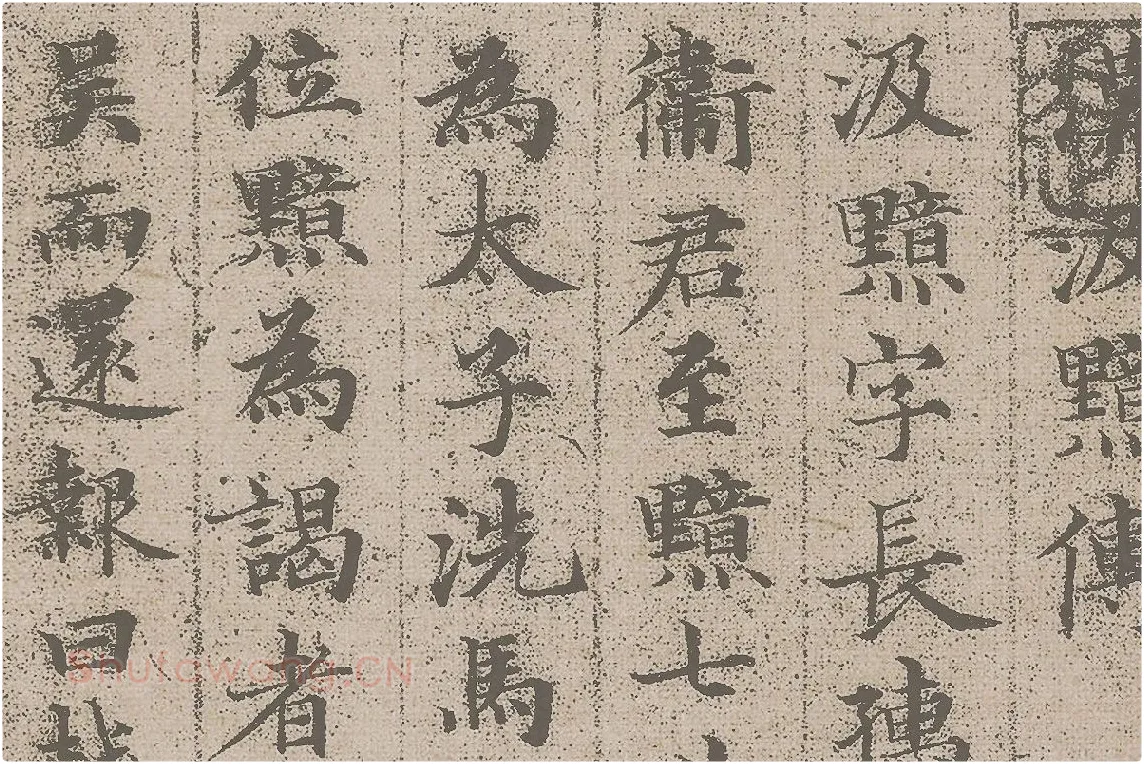 漢汲黯傳
汲黯字長孺
衛君至黯七
為太子洗馬
位黯為謁者
吴而還報曰
Shufawang.CN